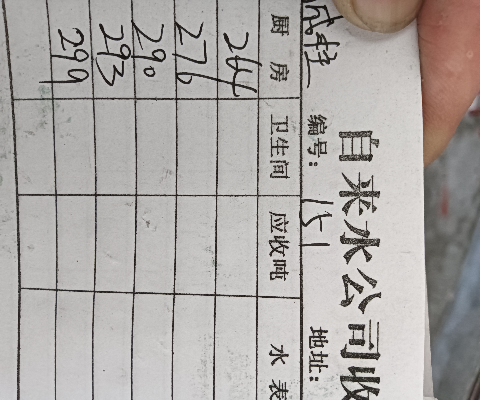 自来水公司收
编号: 151 地址:
厨房 卫生间 应收吨 水表
264
276
290
293
299